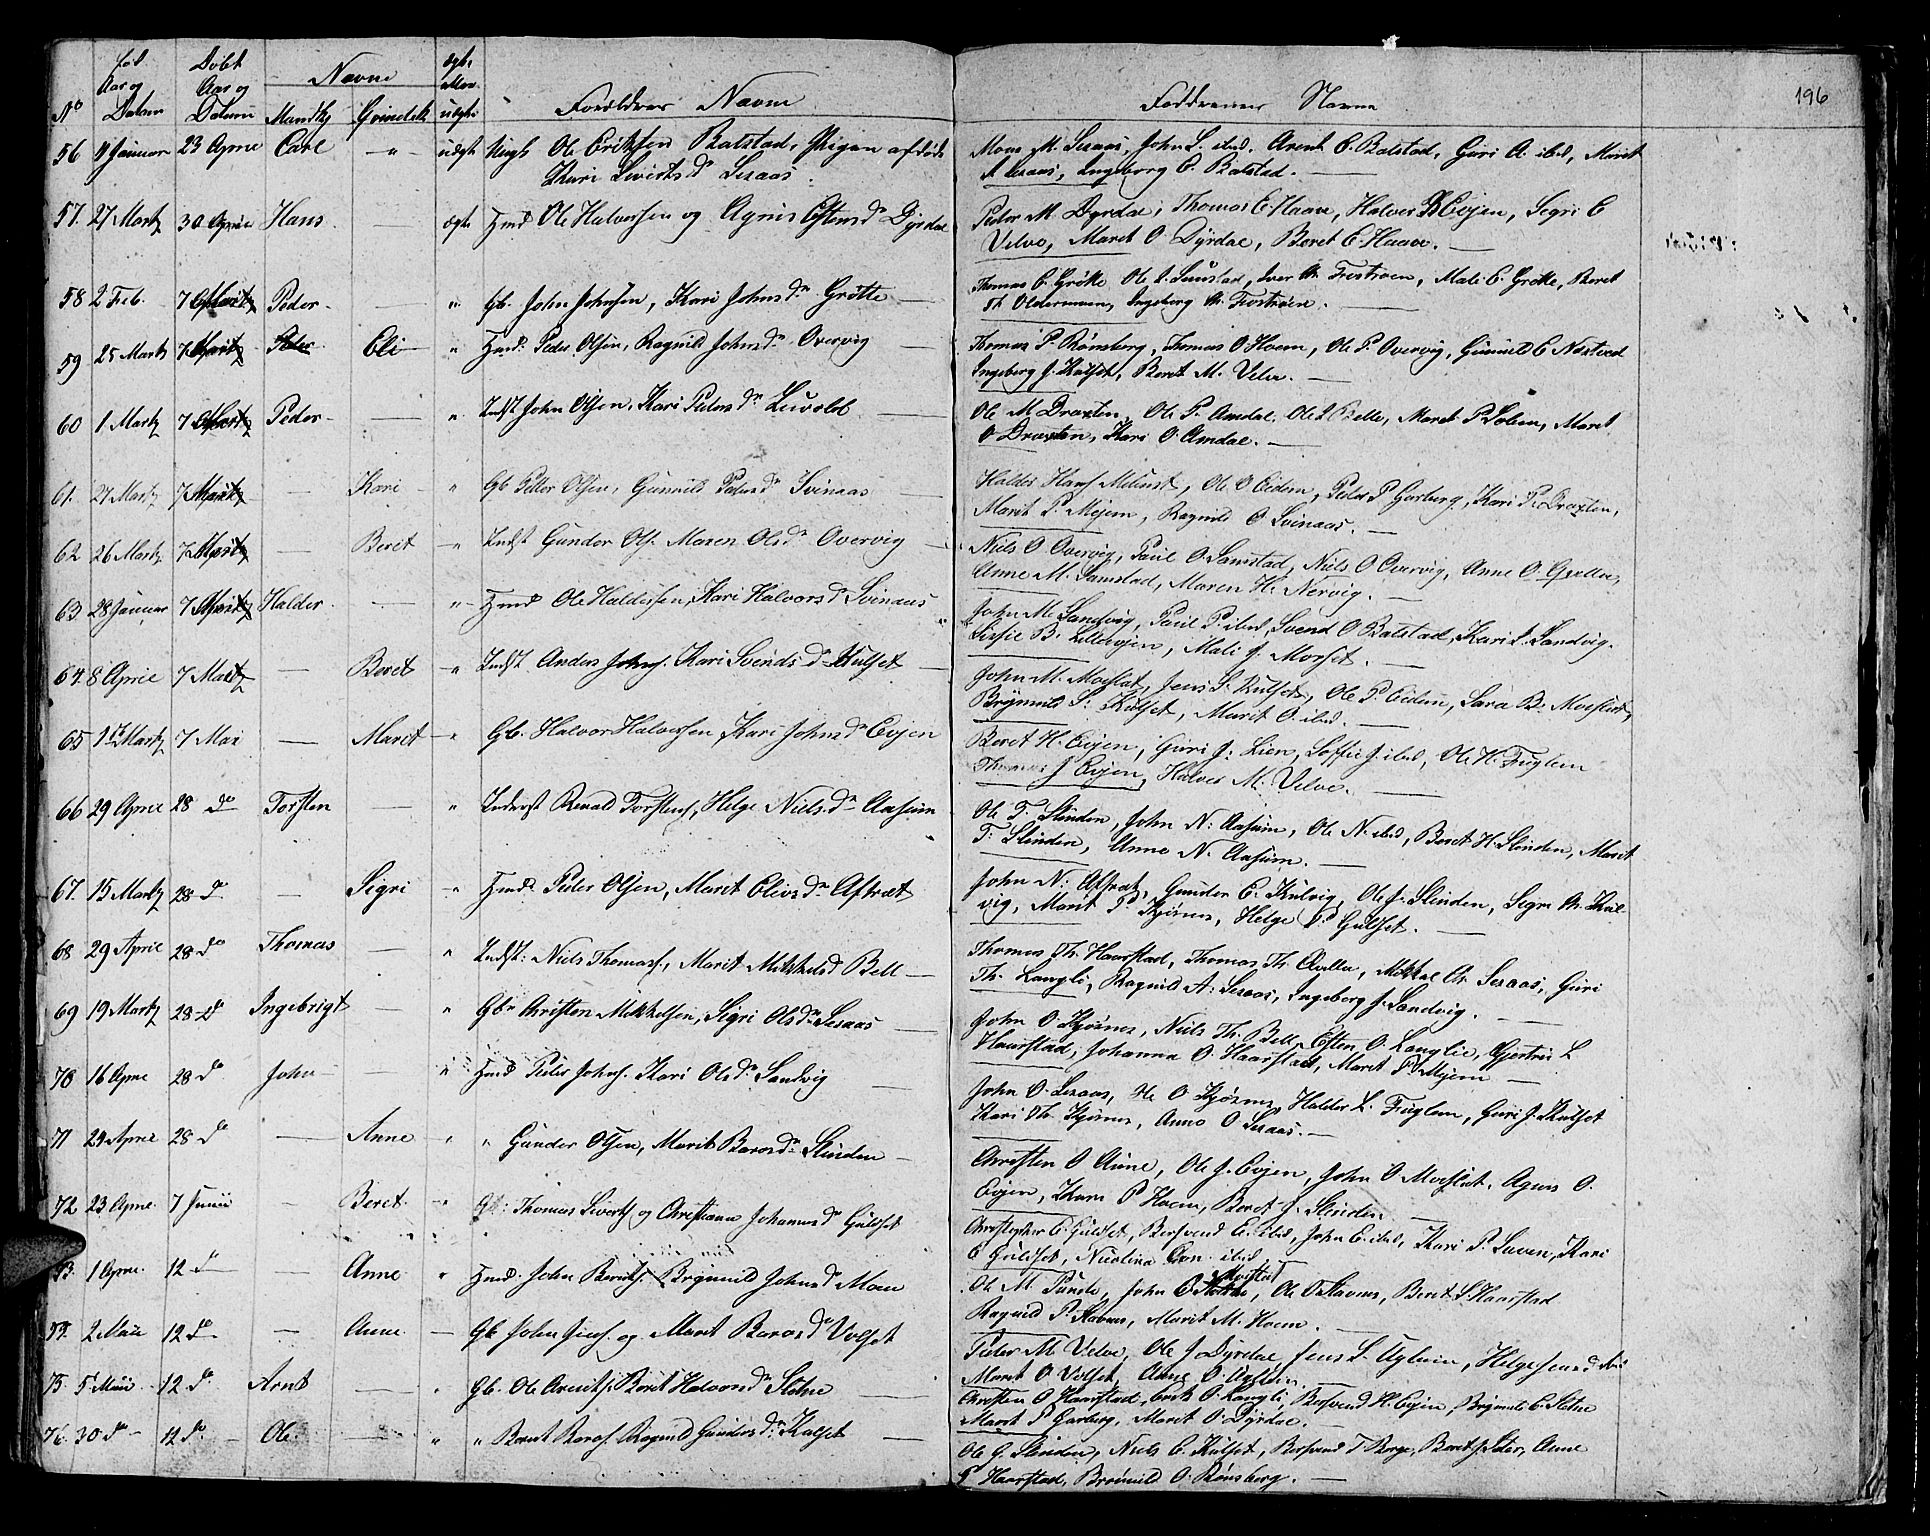 196
No Født Aar og Datum Døbt Aar og Datum Navne Mandkj Qvindekj ægte eller uægte Forældrenes Navne Faddrenes Navne
56 11 Januar 23 Aprie Carl " uægte Ungk Ole Eriksen Balstad, Pigen afdøde
Kari Sivertsdr Seraas.
Mons M. Seraas, John S. ibid, Arent E. Balstad, Guri A. ibid, Marit
A Seraas, Ingeborg E. Balstad.
57. 27 Martz 30 Aprie Hans ægte Hmd Ole Halvorsen og Agnis Estensdr Dyrdae
Peder M. Dyrdae, Thomas E. Haave, Halvor H Evjen, Segri E
Velve, Maret O. Dyrdae, Beret E. Haave.
58 2 Feb. 7 Peder " Gb. John Johnsen, Kari Johnsdr Grøtte
Thomas E. Grøtte Ole I. Samstad, Iver M. Frostroen, Mali E. Grøtte, Beret
Th Oldermoen, Ingeborg M. Frostroen.
59 25 Martz 7 Peder Eli " Hmd. Peder Olsen, Ragnild Johnsdr Overvig
Thomas P. Rønsberg, Thomas O. Hoem, Ole P. Overvig, Gunnild E Næstvod
Ingeberg J. Kulset, Beret M. Velve.
60 1 Martz 7 Peder " Indst John Olsen, Kari Pedersdr Levold
Ole M. Draxten, Ole P. Amdal, Ole I. Belle, Maret P. Solem, Maret
O Draxten, Kari O. Amdae.
61. 27 Martz 7 Kari " Gb Peder Olsen, Gunnild Pedersdr Svinaas
Halder Hans Melinst, Ole O Eidem, Peder P Garberg, Kari P. Draxten,
Marit P. Mejem, Ragnild O Svinaas.
62 26 Martz 7 Beret " Indst Gunder Ols. Maren Olsdr Overvig
Niels O Overvig, Paul O. Samstad, Niels O Overvig, Anne O. Qvelloe,
Anne M. Samstad, Maren H. Nervig.
63 28 Januar 7 Halder " Hmd Ole Haldersen, Kari Halvorsdr Svinaas
John M. Sandvig, Paul P. ibid, Svend O Balstad, Kari I. Sandvig.
Sirsie B. Lillevjen, Mali J. Morset.
64. 8 Aprie 7 Beret " Indst Anders Johns. Kari Svendsdr Kulset
John M. Moeslet, Jens S. Kulset, Ole P. Eidem, Sara B. Moeslet,
Brynnild S. Kulset, Marit O. ibid.
65 1st Martz 7 Mai Maret " Gb. Halvor Halvorsen, Kari Johnsdr Evjen
Beret H. Evjen, Guri J. Lien, Soffie J. ibid, Ole H. Fuglem
Thomas J Evjen, Halvor M. Velve.
66 29 Aprie 28 do Torsten " Inderst Renald Torstens, Helge Nielsdr Aasum
Ole T. Slinden, John N. Aasum, Ole N. ibid, Beret H. Slinden, Marit
T. Slinden, Anne N. Aasum.
67. 15 Martz 28 do Segri " Hmd. Peder Olsen, Marit Elivsdr Aftræt
John N. Aftræt, Gunder E. Kulvig, Ole J. Slinden, Segri M. Kul-
vig, Marit P. Kjøsnes, Helge P. Guldset.
68 29 Aprie 28 do Thomas " Indst: Niels Thomass, Marit Mikkelsd Bell
Thomas Th. Haarstad, Thomas Th. Qvello, Mikkal Ch. Seraas, Guri
Th. Langli, Ragnild A. Seraas, Ingeberg J. Sandvig.
69 19 Martz 28 do Ingebrigt " Gbr Christen Mikkelsen, Sigri Olsdr Seraas
John O. Kjøsnes, Niels Th. Bell, Esten O. Langlie, Gjertrue L
Haarstad, Johanna O. Haarstad, Maret P. Mejem
70 16 Aprie 28 do John " Hmd Peder Johns. Kari Olsdr Sandvig
John O. Seraas, Ole O. Kjøsnes, Halder L. Fuglem, Guri J. Kulset
Kari Th. Kjøsnes, Anne O Seraas.
71 29 Aprie 28 do Anne " " Gunder Olsen, Marit Barosdr Slinden
Christen O Aune, Ole J. Evjen, John O Moeslet, Agnes O.
Evjen, Karn P. Hoem, Beret J. Slinden.
72 23 Aprie. 7 Junii Beret " Gb: Thomas Siverts og Christiana Johannsdr Guldset
Christopher E. Guldset, Bersvend E. ibid, John E. ibid, Kari P. Suven, Kari
E Guldset, Nicolina Con. ibid
73. 1 Aprie. 12 do Anne " Hmd. John Berits. Brynnild Johnsdr Moen
Ole M. Punde, John E. Moeslet, Ole O Stavnes, Beret L. Haarstad
Ragnild P. Stavnes, Marit M. Hoem.
74. 2 Maii 12 do Anne Gb John Jens. og Maret Barosdr Volset
Peder M. Velve, Ole J Dyrdae, Jens L. Uglem, Helge
Maret O Volset, Anne O. Uglem
75. 5 Maii 12 do Arnt " Gb. Ole Arents. Beret Halvorsdr Stokne
Christen O Haarstad, Erik O. Langli, Bersvend H. Evjen, Brynnild E. Stokne
Maret P Garberg, Maret O. Dyrdae.
76. 30 do 12 do Ole " " Bernt Baros. Ragnild Gundersdr Kulset
Ole G. Slinden, Niels E. Kulset, Bersvend T Berge, Beret J. Seter, Anne
T Haarstad, Brønild O. Rønsberg.